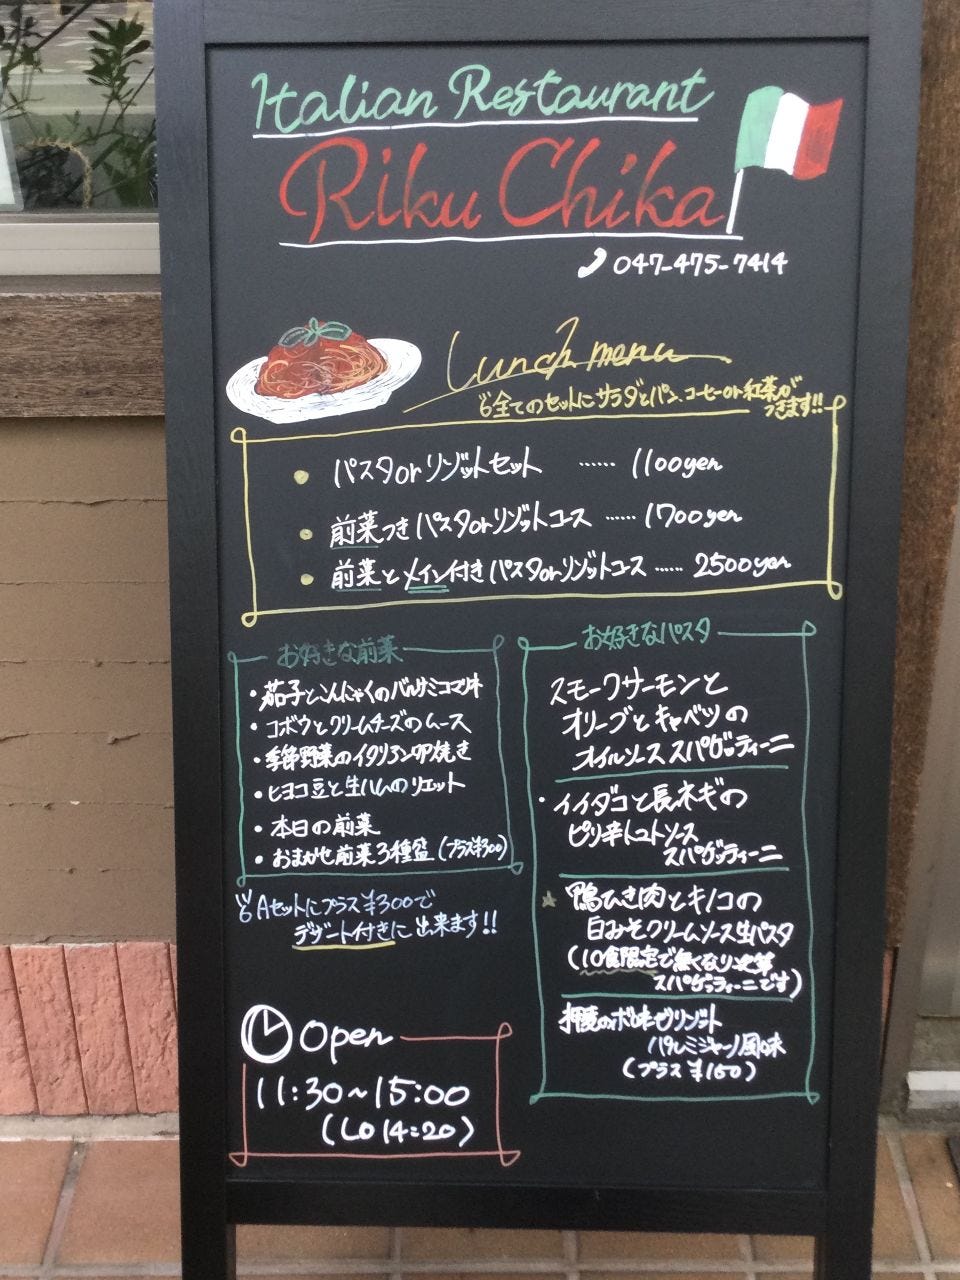 Italian Restaurant
Riku Chika
047-475-7414
Lunch menu
全てのセットにサラダとパン、コーヒーor紅茶が
つきます!!
パスタorリゾットセット …… 1100yen
前菜つきパスタorリゾットコース …… 1700yen
前菜とメイン付きパスタorリゾットコース …… 2500yen
お好きな前菜
・茄子とこんにゃくのバルサミコマリネ
・ゴボウとクリームチーズのムース
・季節野菜のイタリアン卵焼き
・ヒヨコ豆と生ハムのリエット
・本日の前菜
・おまかせ前菜3種盛(プラス¥300)
Aセットにプラス¥300で
デザート付きに出来ます!!
Open
11:30~15:00
(LO 14:20)
お好きなパスタ
スモークサーモンと
オリーブとキャベツの
オイルソーススパゲッティーニ
・イイダコと長ネギの
ピリ辛トマトソース
スパゲッティーニ
★鴨ひき肉とキノコの
白みそクリームソース生パスタ
(10食限定で無くなり次第
スパゲッティーニです)
押麦のリゾット
パルミジャーノ風味
(プラス¥150)